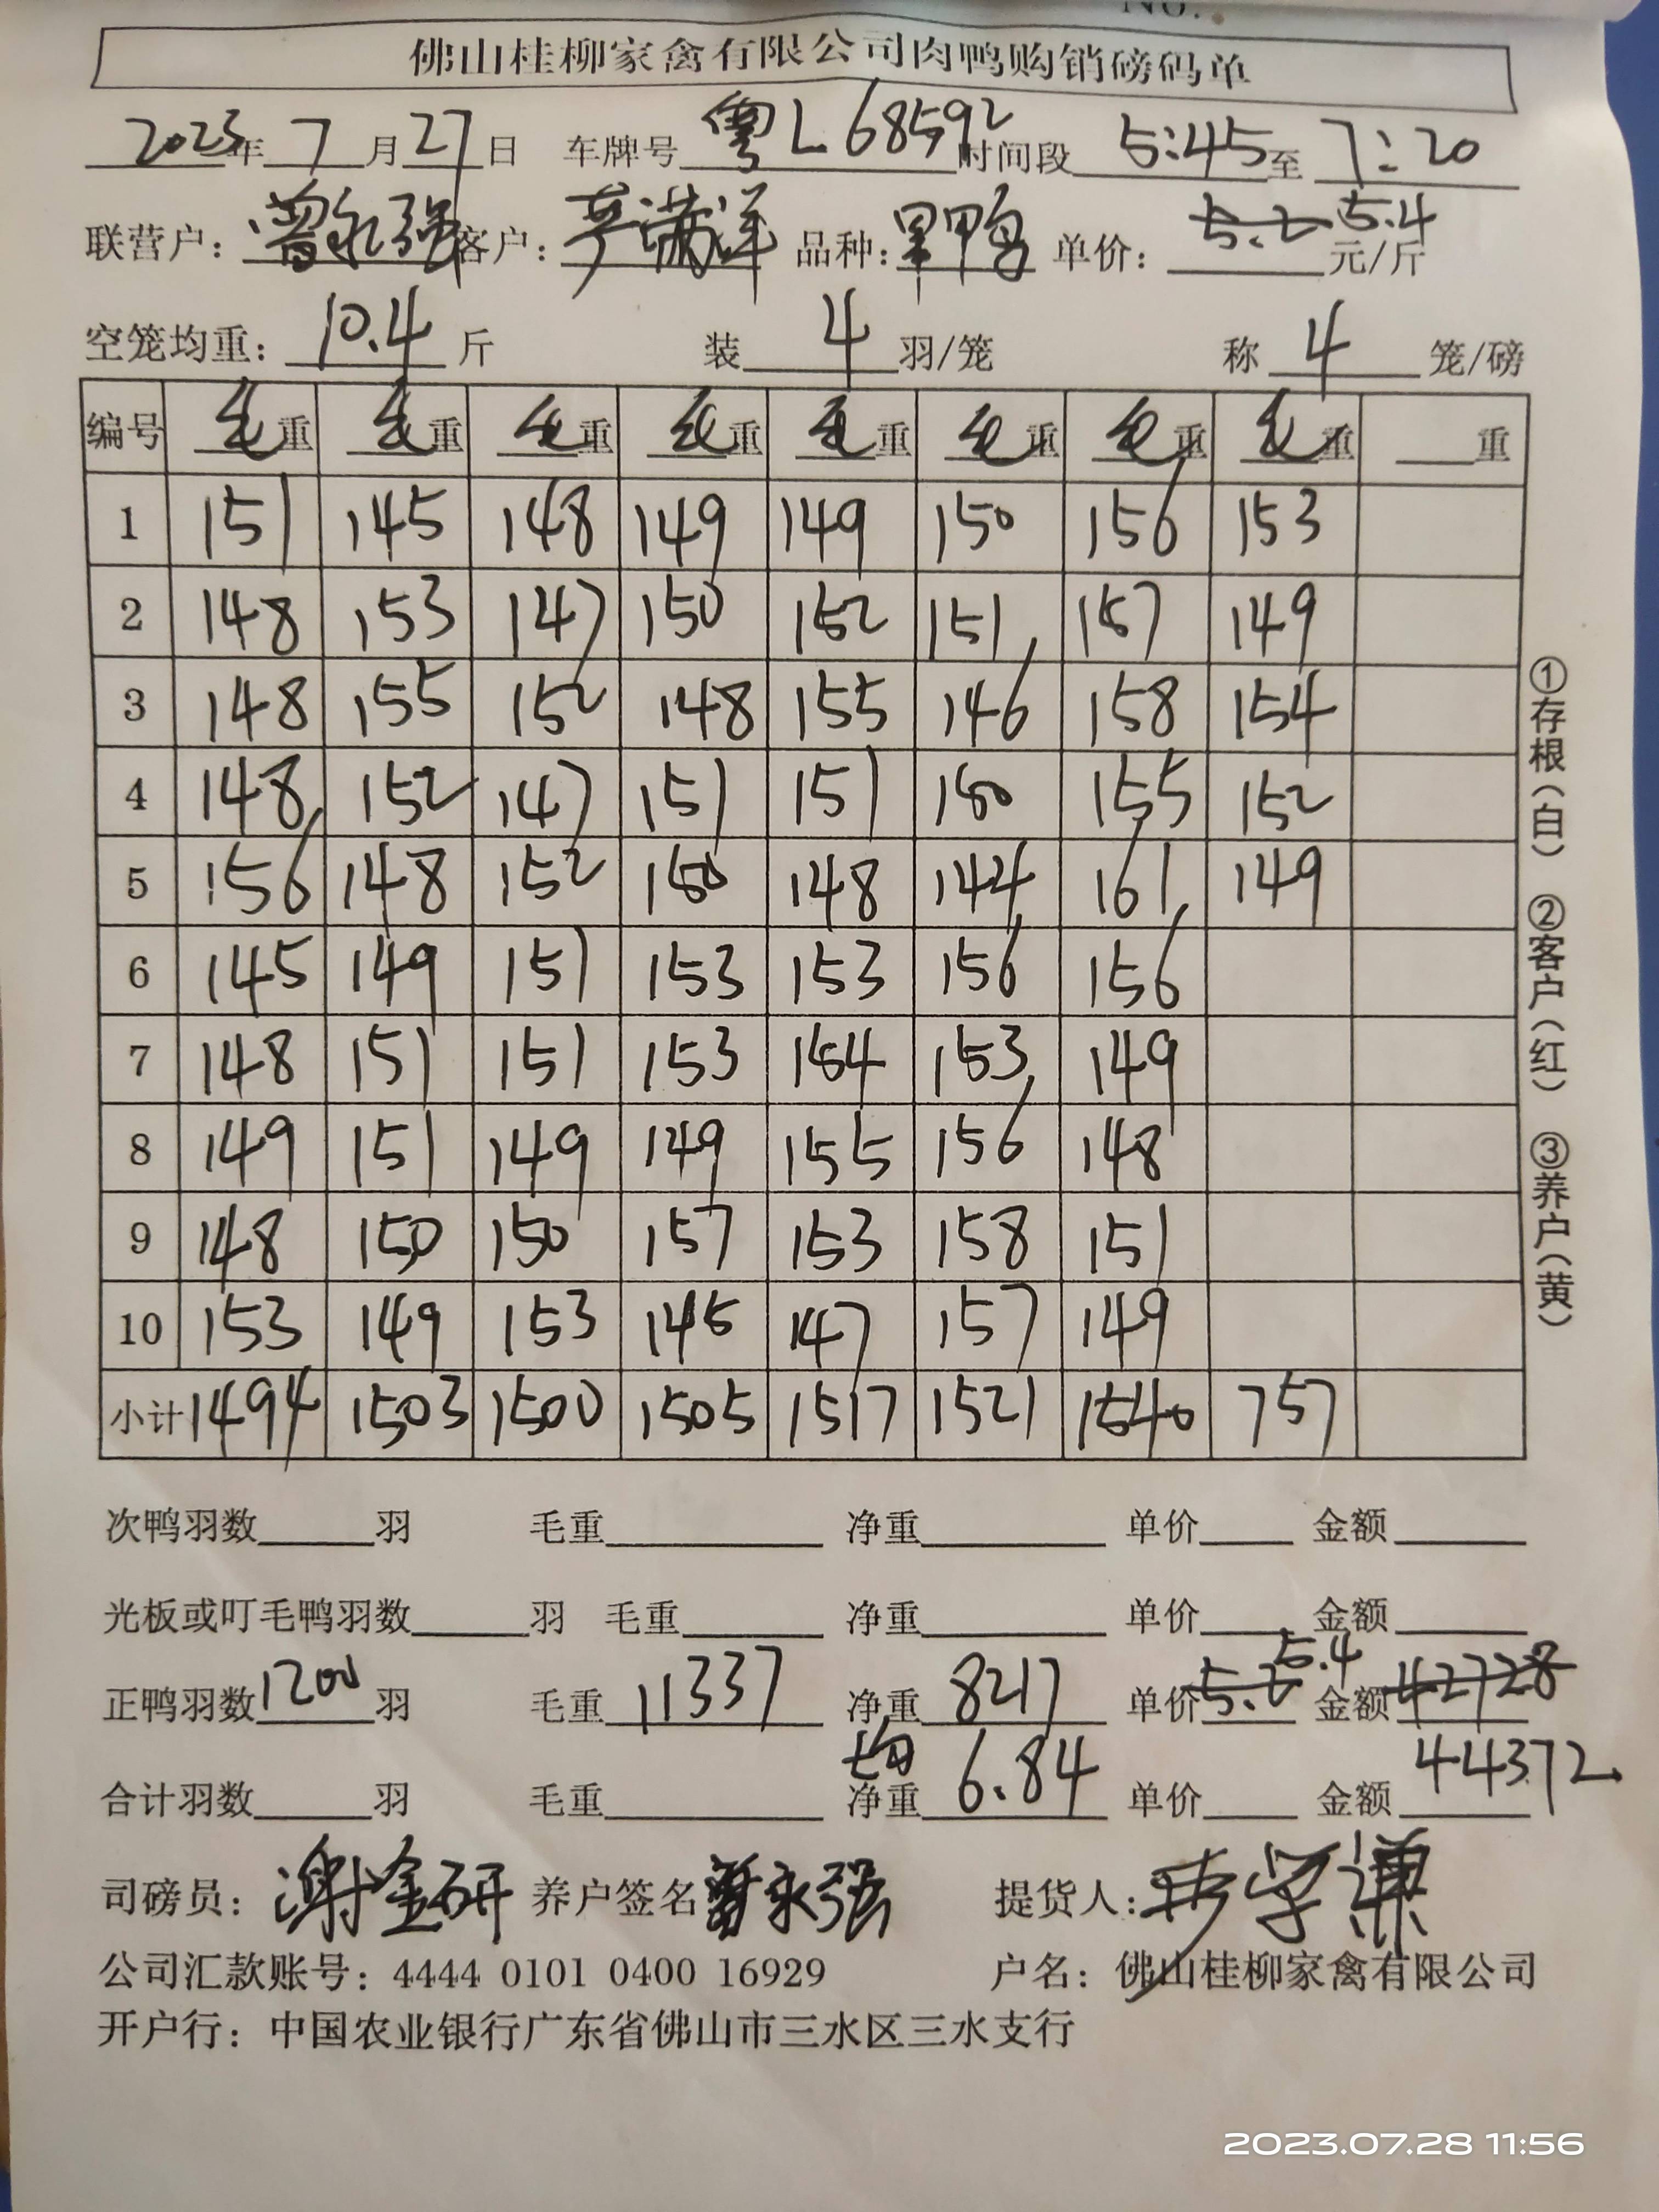 No.
佛山桂柳家禽有限公司肉鸭购销磅码单
2023年 7 月 27 日 车牌号 粤L68592 时间段 5:45 至 7:20
联营户：曾永强 客户：满洋 品种：鸭 单价：5.2 5.4 元/斤
空笼均重：10.4 斤 装 4 羽/笼 称 4 笼/磅
编号 毛重 毛重 毛重 毛重 毛重 毛重 毛重 毛重 重
1 151 145 148 149 149 150 156 153
2 148 153 147 150 152 151 157 149
3 148 155 152 148 155 146 158 154
4 148 152 147 151 151 150 155 152
5 156 148 152 150 148 144 161 149
6 145 149 151 153 153 156 156
7 148 151 151 153 154 153 149
8 149 151 149 149 155 156 148
9 148 150 150 157 153 158 151
10 153 149 153 145 147 157 149
小计 1494 1503 1500 1505 1517 1521 1540 757
①存根（白） ②客户（红） ③养户（黄）
次鸭羽数 羽 毛重 净重 单价 金额
光板或叮毛鸭羽数 羽 毛重 净重 单价 金额
正鸭羽数 1200 羽 毛重 11337 净重 8217 单价 5.2 5.4 金额 42728
合计羽数 羽 毛重 均 净重 6.84 单价 金额 44372
司磅员：谢金研 养户签名 曾永强 提货人：学谦
公司汇款账号：4444 0101 0400 16929 户名：佛山桂柳家禽有限公司
开户行：中国农业银行广东省佛山市三水区三水支行
2023.07.28 11:56